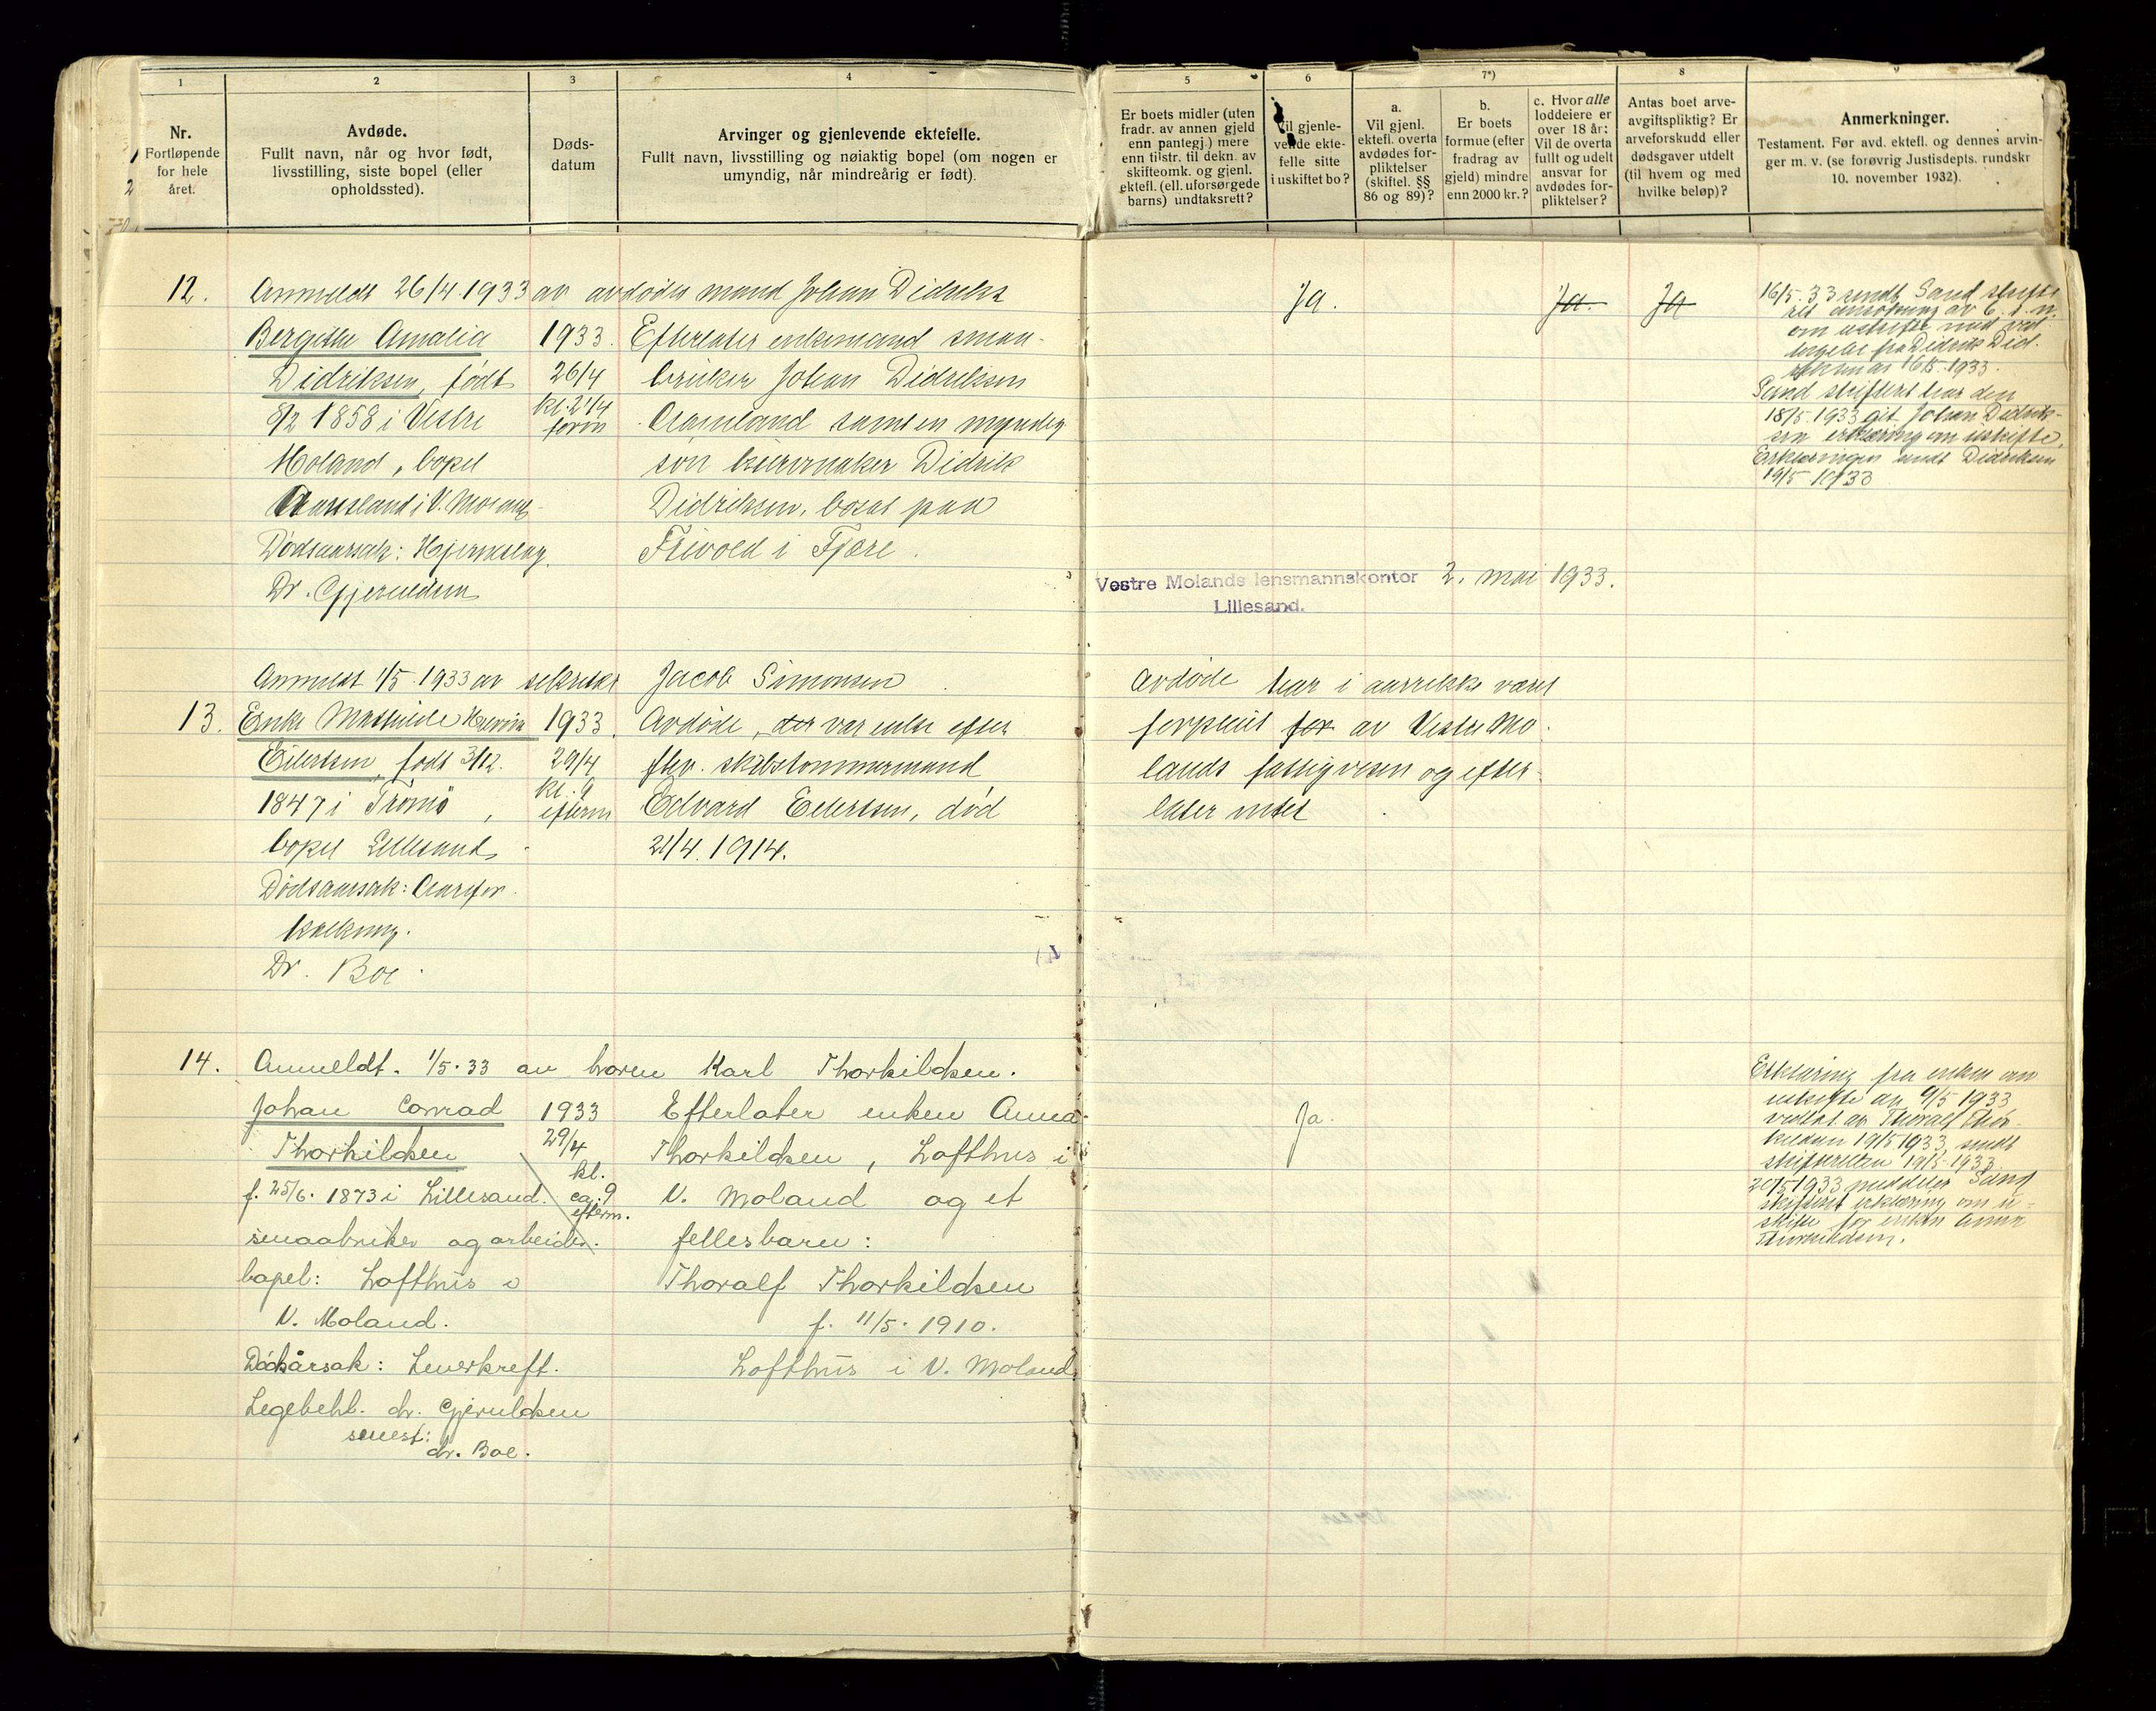 1
2
3
4
5
6
7*)
8
9
Nr.
Fortløpende
for hele
året.
Avdøde.
Fullt navn, når og hvor født,
livsstilling, siste bopel (eller
opholdssted).
Døds-
datum
Arvinger og gjenlevende ektefelle.
Fullt navn, livsstilling og nøiaktig bopel (om nogen er
umyndig, når mindreårig er født).
Er boets midler (uten
fradr. av annen gjeld
enn pantegj.) mere
enn tilstr. til dekn. av
skifteomk. og gjenl.
ektefl. (ell. uforsørgede
barns) undtaksrett?
Vil gjenle-
vende ekte-
felle sitte
i uskiftet bo?
a.
Vil gjenl.
ektefl. overta
avdødes for-
pliktelser
(skiftel. §§
86 og 89)?
b.
Er boets
formue (efter
fradrag av
gjeld) mindre
enn 2000 kr.?
c. Hvor alle
loddeiere er
over 18 år:
Vil de overta
fullt og udelt
ansvar for
avdødes for-
pliktelser?
Antas boet arve-
avgiftspliktig? Er
arveforskudd eller
dødsgaver utdelt
(til hvem og med
hvilke beløp)?
Anmerkninger.
Testament. Før avd. ektefl. og dennes arvin-
ger m. v. (se forøvrig Justisdepts. rundskr
10. november 1932).
12.
Anmeldt 26/4 1933 av avdødes mand Johan Didriks
Bergitte Amalia
Didriksen, født
8/2 1858 i Vestre
Moland, bopel
i V. Moland
Dødsaarsak: Hjerneslag.
Dr. Gjeruldsen
1933.
26/4
kl. 2 1/4
form
Efterlater enkemand smaa-
bruker Johan Didriksen
samt en myndig
søn Didrik
Didriksen, bosat paa
Frivold i Fjære.
Ja.
Ja.
Ja
16/5. 33 sendt Sand skifte
ret ansøkning av E. s. m.
om uskifte med ved
tagelse fra Didrik Did.
16/5-1933.
Sand skifteret har den
18/5 1933 git Johan Didrik-
sen erklæring om uskifte.
Erklæringen sendt Didriksen
19/5 1933
Vestre Molands lensmannskontor 2. mai 1933.
Lillesand.
Anmeldt 1/5 1933 av Jacob Simonsen
13.
Enke Mathilde
Eilertsen født 3/12.
1847 i Tromø,
bopel Lillesand
Dødsaarsak: Aarefor
kalkning.
Dr. Boe.
1933.
29/4
kl. 9
efterm
Avdøde, der var enke efter
fhv. skibstømmermand
Edvard Eilertsen, død
21/4. 1914.
Avdøde har i aarrekke været
forpleiet for av Vestre Mo
lands fattigvesen og efter-
later intet
14.
Anmeldt. 1/5. 33 av broren Karl Thorkildsen.
Johan Conrad
Thorkildsen
f. 25/6. 1873 i Lillesand.
smaabruker og arbeider.
bopel: Lofthus i
V. Moland.
Dødsårsak: Leverkreft.
Legebehl. dr. Gjeruldsen
senest:
dr. Boe.
1933
29/4
kl.
ca. 9
efterm.
Efterlater enken Anna
Thorkildsen, Lofthus i
V. Moland og et
fellesbarn:
Thoralf Thorkildsen
f. 11/5. 1910.
Lofthus i V. Moland
Ja.
Erklæring fra enken om
uskifte av 9/5 1933
vedtat av Thoralf Thor-
kildsen 19/5 1933 sendt
skifteretten 19/5-1933
20/5 1933 meddeler Sand
skifteret erklæring om u-
skifte for enken Anna
Thorkildsen.